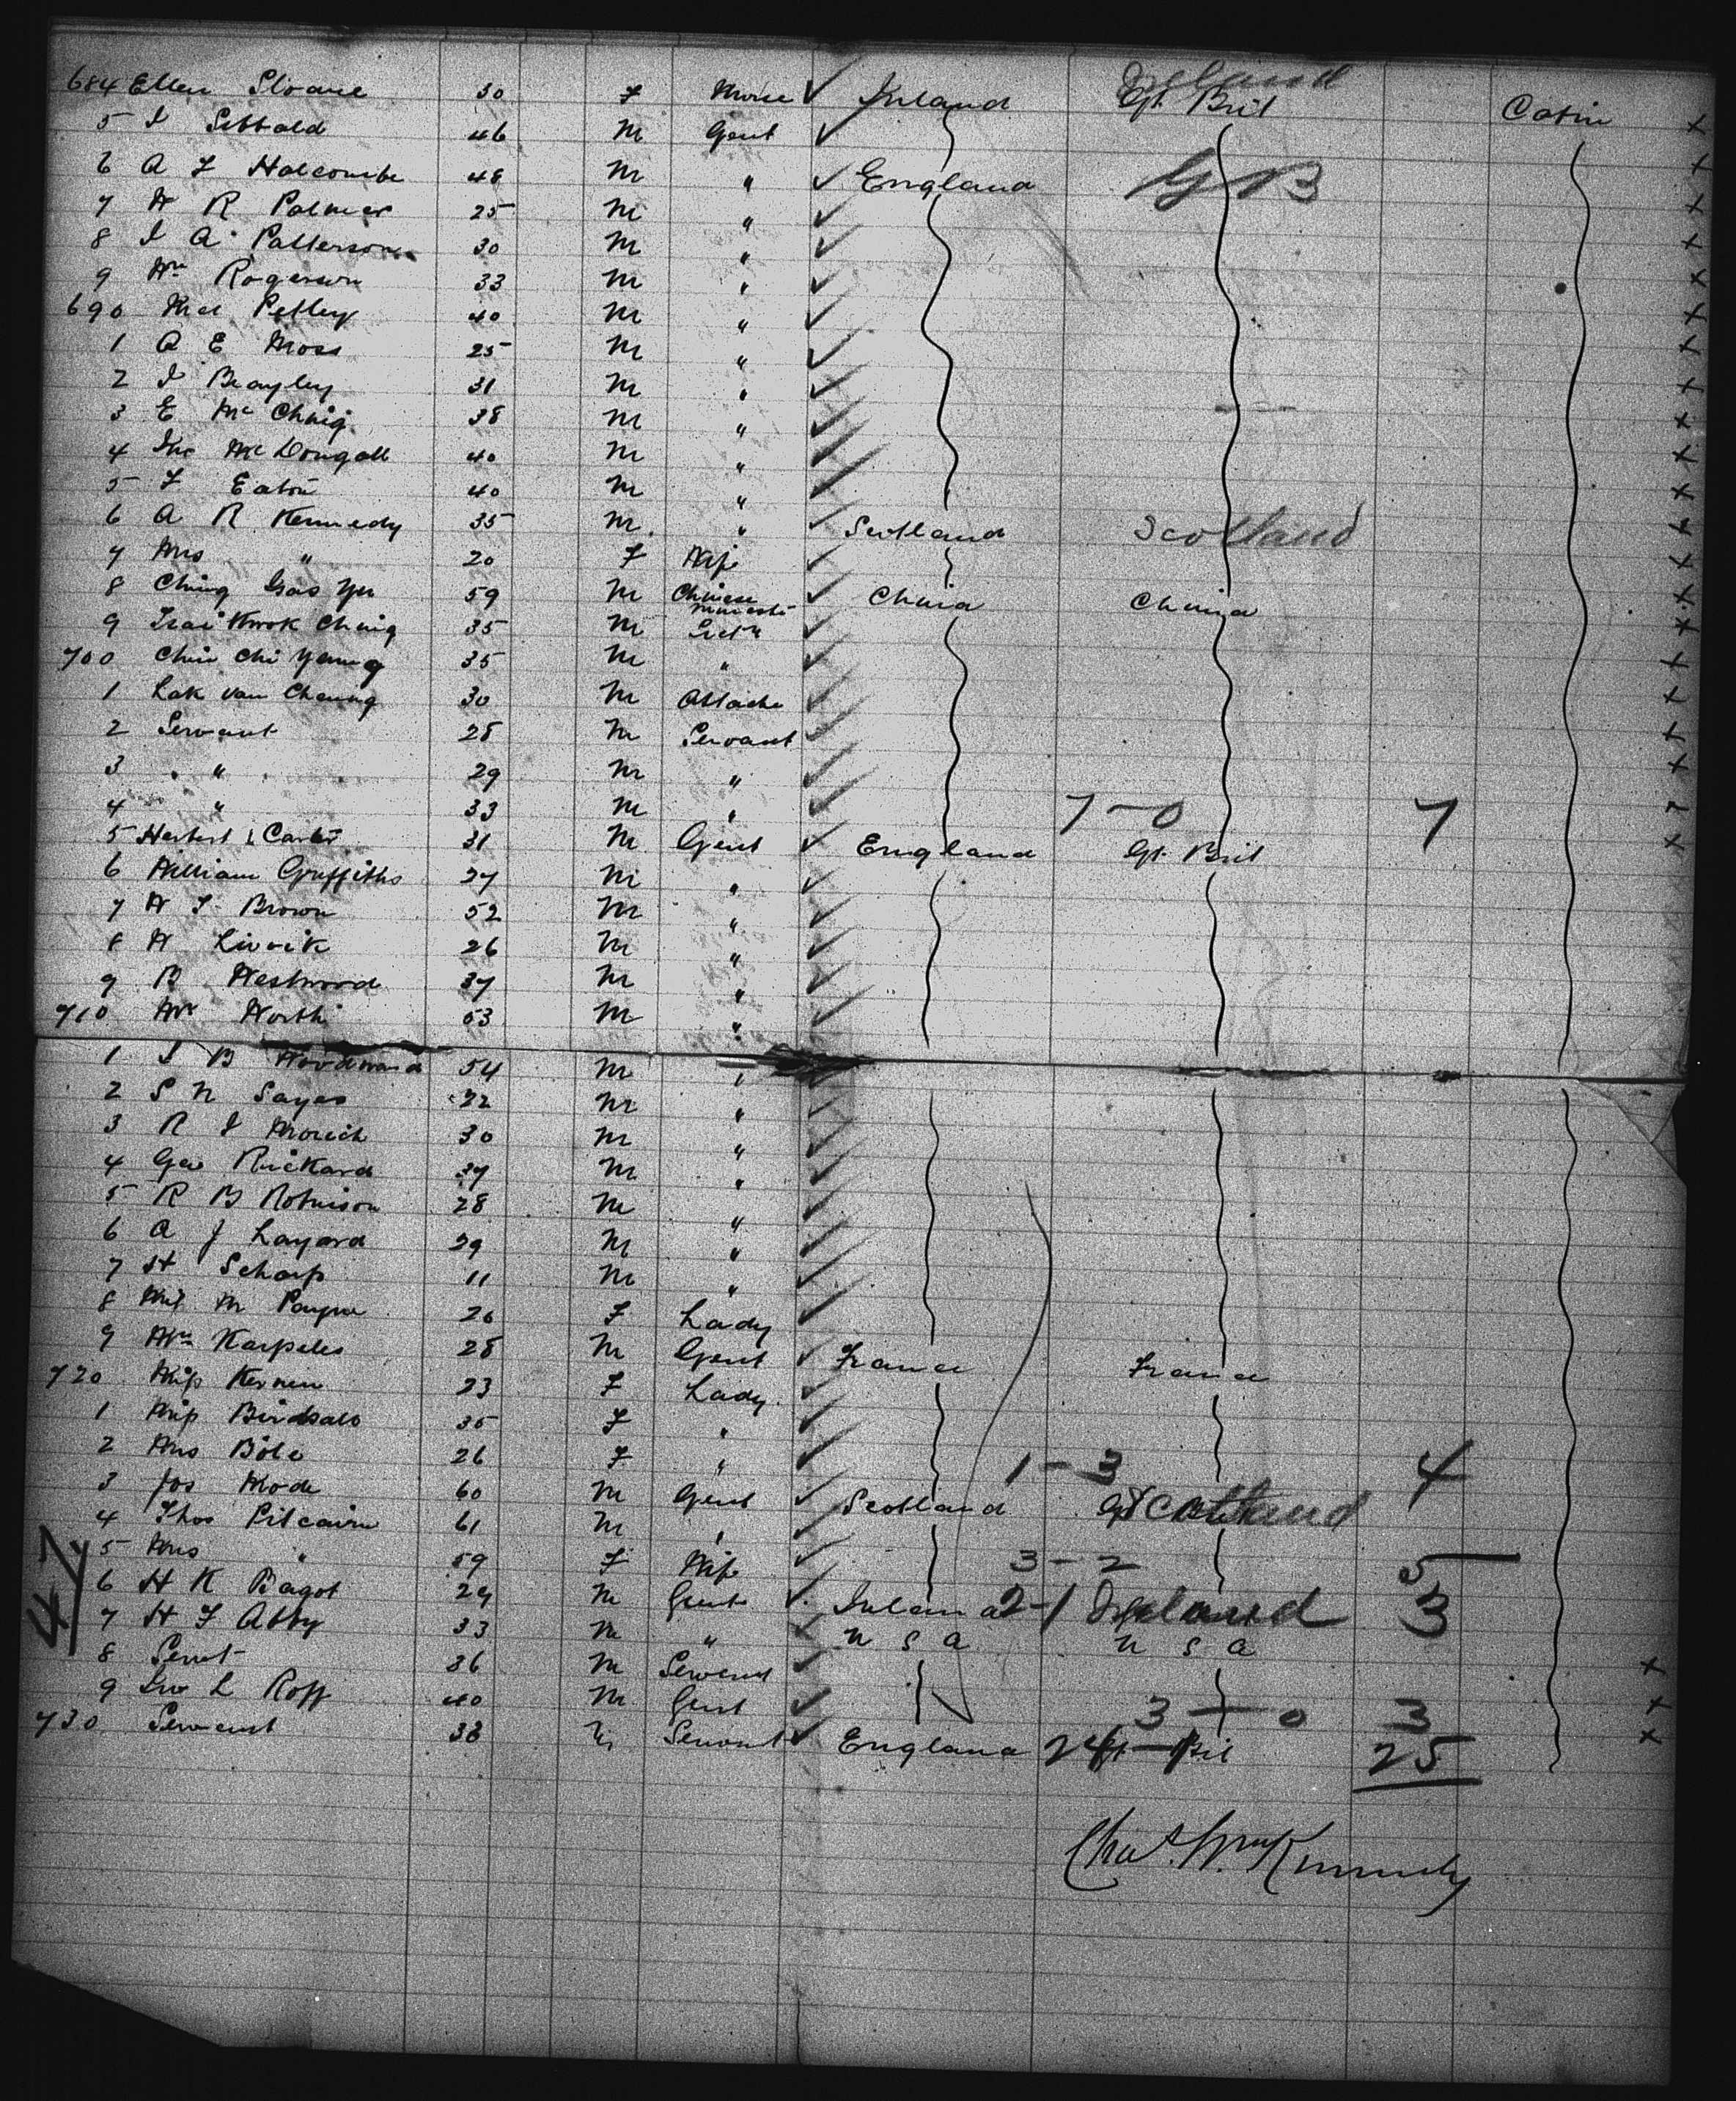 Ireland
684 Ellen Sloane 30 F Nurse ✓ Ireland Gt. Brit Cabin x
5 J Sibbald 46 M Gent ✓ x
6 A F Halcombe 48 M " ✓ England G B x
7 W R Palmer 25 M " ✓ x
8 J A Patterson 30 M " ✓ x
9 Wm Rogerson 33 M " ✓ x
690 Petley 40 M " ✓ x
1 A E Moss 25 M " ✓ x
2 J Bayley 31 M " ✓ x
3 E Mc 38 M " ✓ x
4 Jno McDougall 40 M " ✓ x
5 F Eaton 40 M " ✓ x
6 A R Kennedy 35 M " ✓ Scotland Scotland x
7 Mrs " 20 F Wife ✓ x
8 Ching Yu 59 M Chinese Minister ✓ China China x
9 Tsai Kwok Ching 35 M Secty ✓ x
700 Chin Chi Yeung 35 M " ✓ x
1 Lok Van Cheung 30 M Attache ✓ x
2 Servant 28 M Servant ✓ x
3 " 29 M " ✓ x
4 " 33 M " ✓ 7-0 7
5 Herbert Carter 31 M Gent ✓ England Gt. Brit x
6 William Griffiths 27 M " ✓
7 W F Brown 52 M " ✓
8 W 26 M " ✓
9 B Westwood 37 M " ✓
710 Mr North 53 M " ✓
1 J B Woodward 54 M " ✓
2 S N Sayer 32 M " ✓
3 R J 30 M " ✓
4 Geo Rickard 37 M " ✓
5 R B Robinson 28 M " ✓
6 A J Layard 29 M " ✓
7 H Scharp 11 M " ✓
8 M Payne 26 F Lady ✓
9 Wm Karpeles 28 M Gent ✓ France France
720 Miss Kernen 23 F Lady ✓
1 Miss Birdsall 35 F " ✓
2 Mrs Bole 26 F " ✓ 1-3 4
3 Jos Mode 60 M Gent ✓ Scotland Scotland
4 Thos Pitcairn 61 M " ✓
5 Mrs " 59 F Wife ✓ 3-2 5
47
6 H K Bagot 29 M Gent ✓ Ireland 2-1 Ireland 3
7 H F Abby 33 M " ✓ U S A U S A
8 Servt 36 M Servant ✓ x
9 Jno L Roff 40 M Gent ✓ 3-0 3 x
730 Servant 38 M Servant ✓ England Gt Brit 25 x
Chas. Wm Kennedy